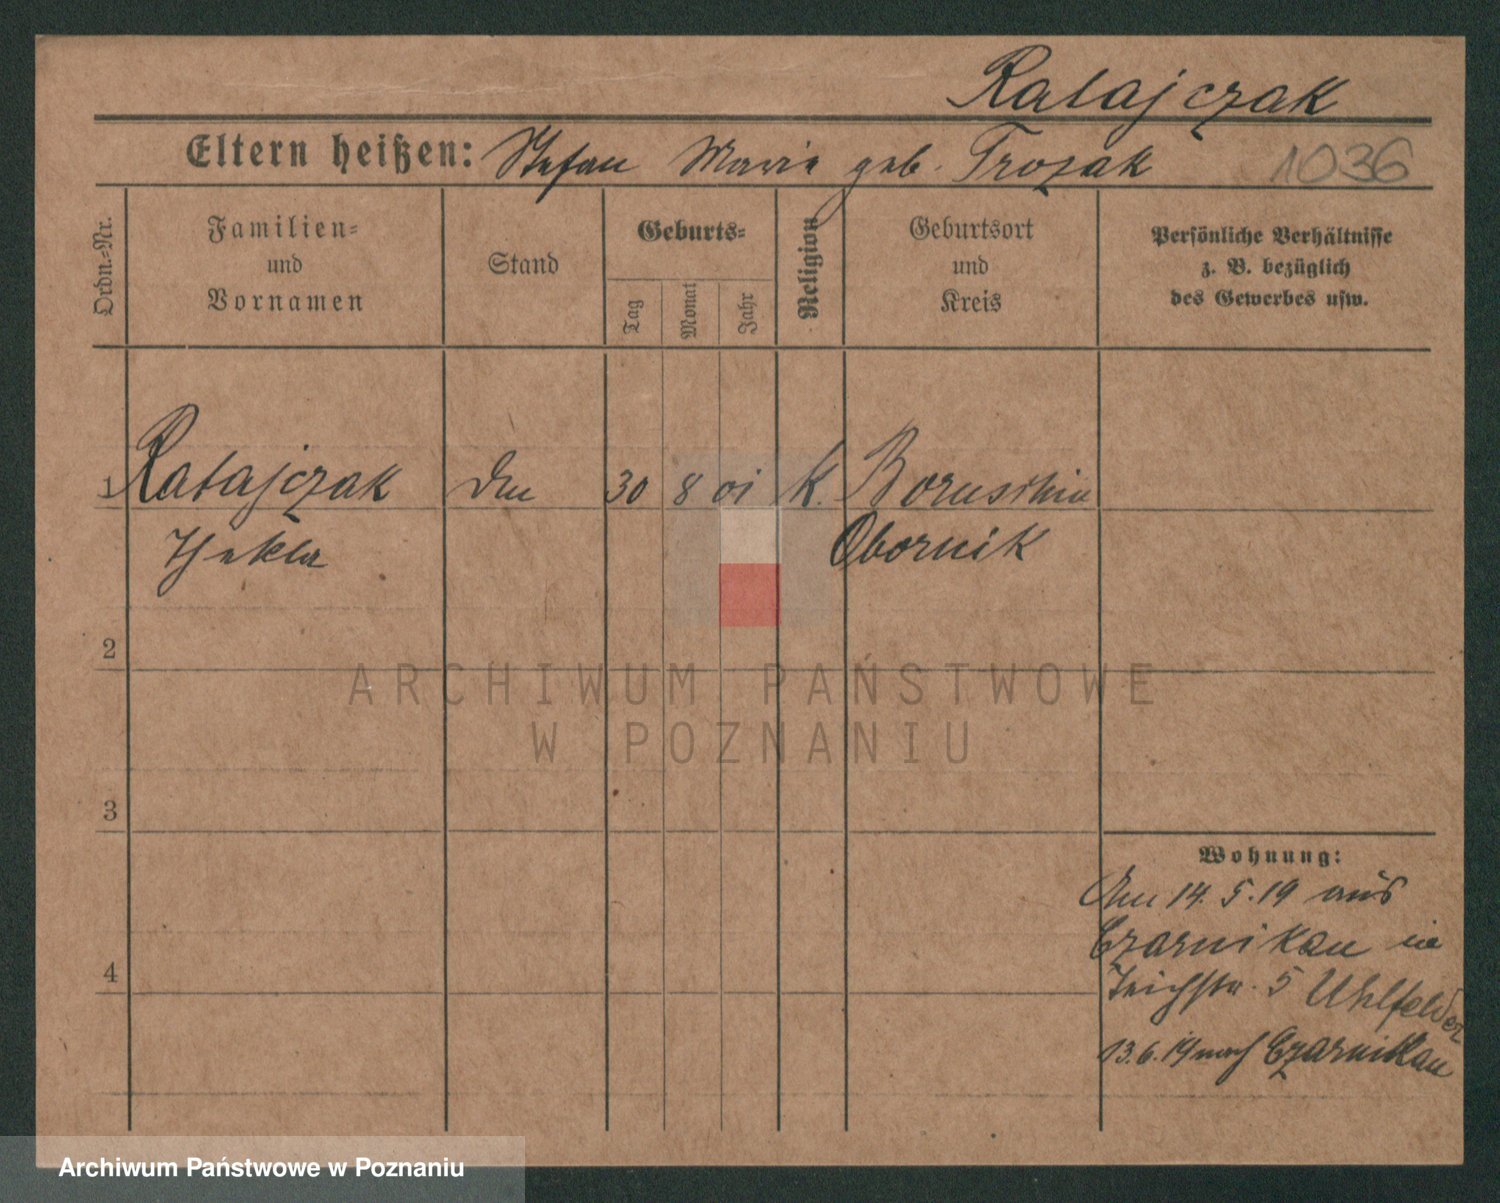 Ratajczak
Eltern heißen: Stefan Marie geb. Trozak 1036
Ordn.-Nr.
Familien-
und
Vornamen
Stand
Geburts-
Tag
Monat
Jahr
Religion
Geburtsort
und
Kreis
Persönliche Verhältnisse
z. B. bezüglich
des Gewerbes usw.
1 Ratajczak 30 8 01 k. Boruschin
Thekla Obornik
2
ARCHIWUM PAŃSTWOWE
W POZNANIU
3
Wohnung:
Am 14.5.19 aus
Czarnikau in
4
Teichstr. 5 Uhlfelder
13.6.19 nach Czarnikau
Archiwum Państwowe w Poznaniu